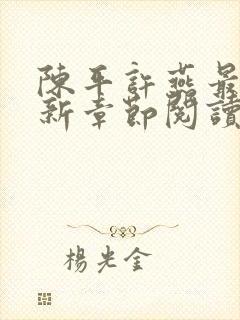 陳平許燕最
新章節閱讀
楊光金